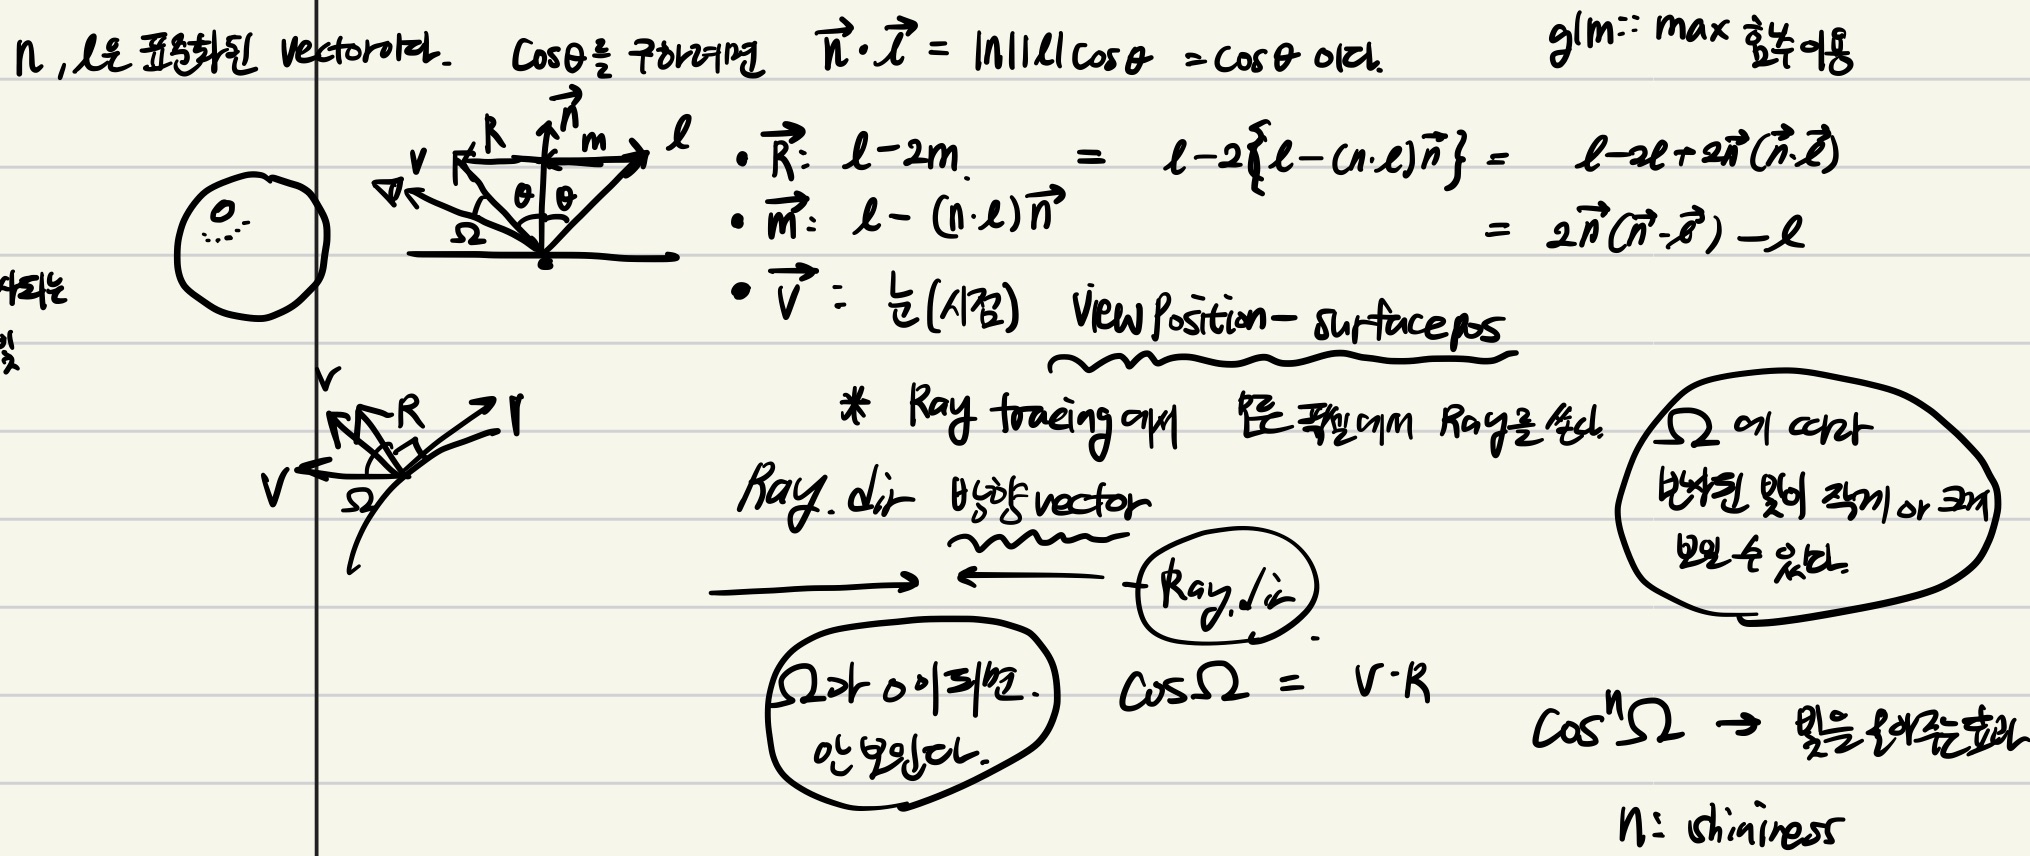 n, l은 표준화된 vector이다. Cosθ를 구하려면 n·l = |n||l|cosθ = cosθ 이다. glm:: max 함수이용
V R n m l
θ θ
Ω
• R: l-2m = l-2{l-(n·l)n} = l-2l+2n(n·l)
• m: l-(n·l)n = 2n(n·l)-l
사되는
빛
• V: 눈(시점) View Position - surface pos
V R l
V Ω
* Ray tracing에서 모든 픽셀에서 Ray를 쏜다.
Ray. dir 방향vector
- Ray.dir
Ω에 따라
반사된 빛이 작게 or 크게
보일 수 있다.
Ω가 0이되면.
안 보인다.
cosΩ = V·R
cosⁿΩ → 빛을 모아주는효과
n: shininess